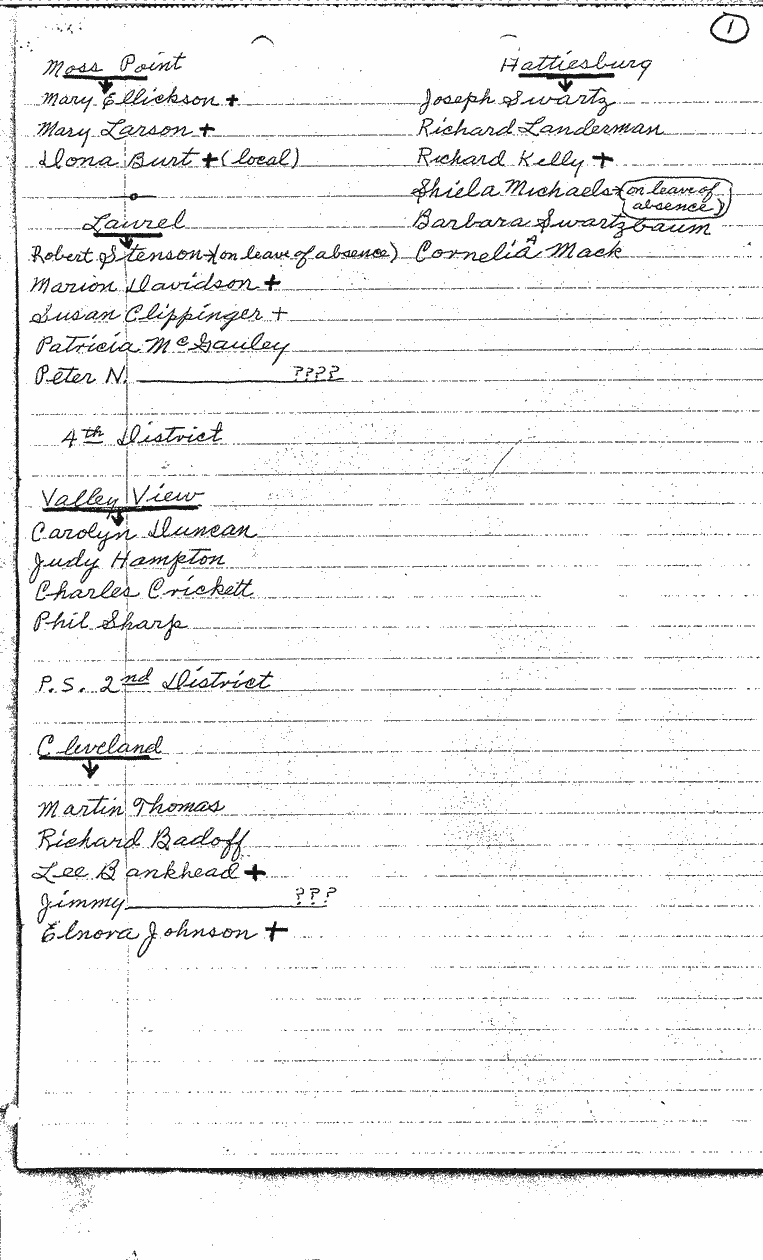 1
Moss Point
Mary Ellickson +
Mary Larson +
Ilona Burt + (local)
Laurel
Robert Stenson-(on leave of absence)
Marion Davidson +
Susan Clippinger +
Patricia McGauley
Peter N. ____________ ????
4th District
Valley View
Carolyn Duncan
Judy Hampton
Charles Crickett
Phil Sharp
P.S. 2nd District
Cleveland
Martin Thomas
Richard Badoff
Lee Bankhead +
Jimmy ____________ ???
Elnora Johnson +
Hattiesburg
Joseph Swartz
Richard Landerman
Richard Kelly +
Shiela Michaels-(on leave of
absence)
Barbara Swartzbaum
Cornelia A Mack